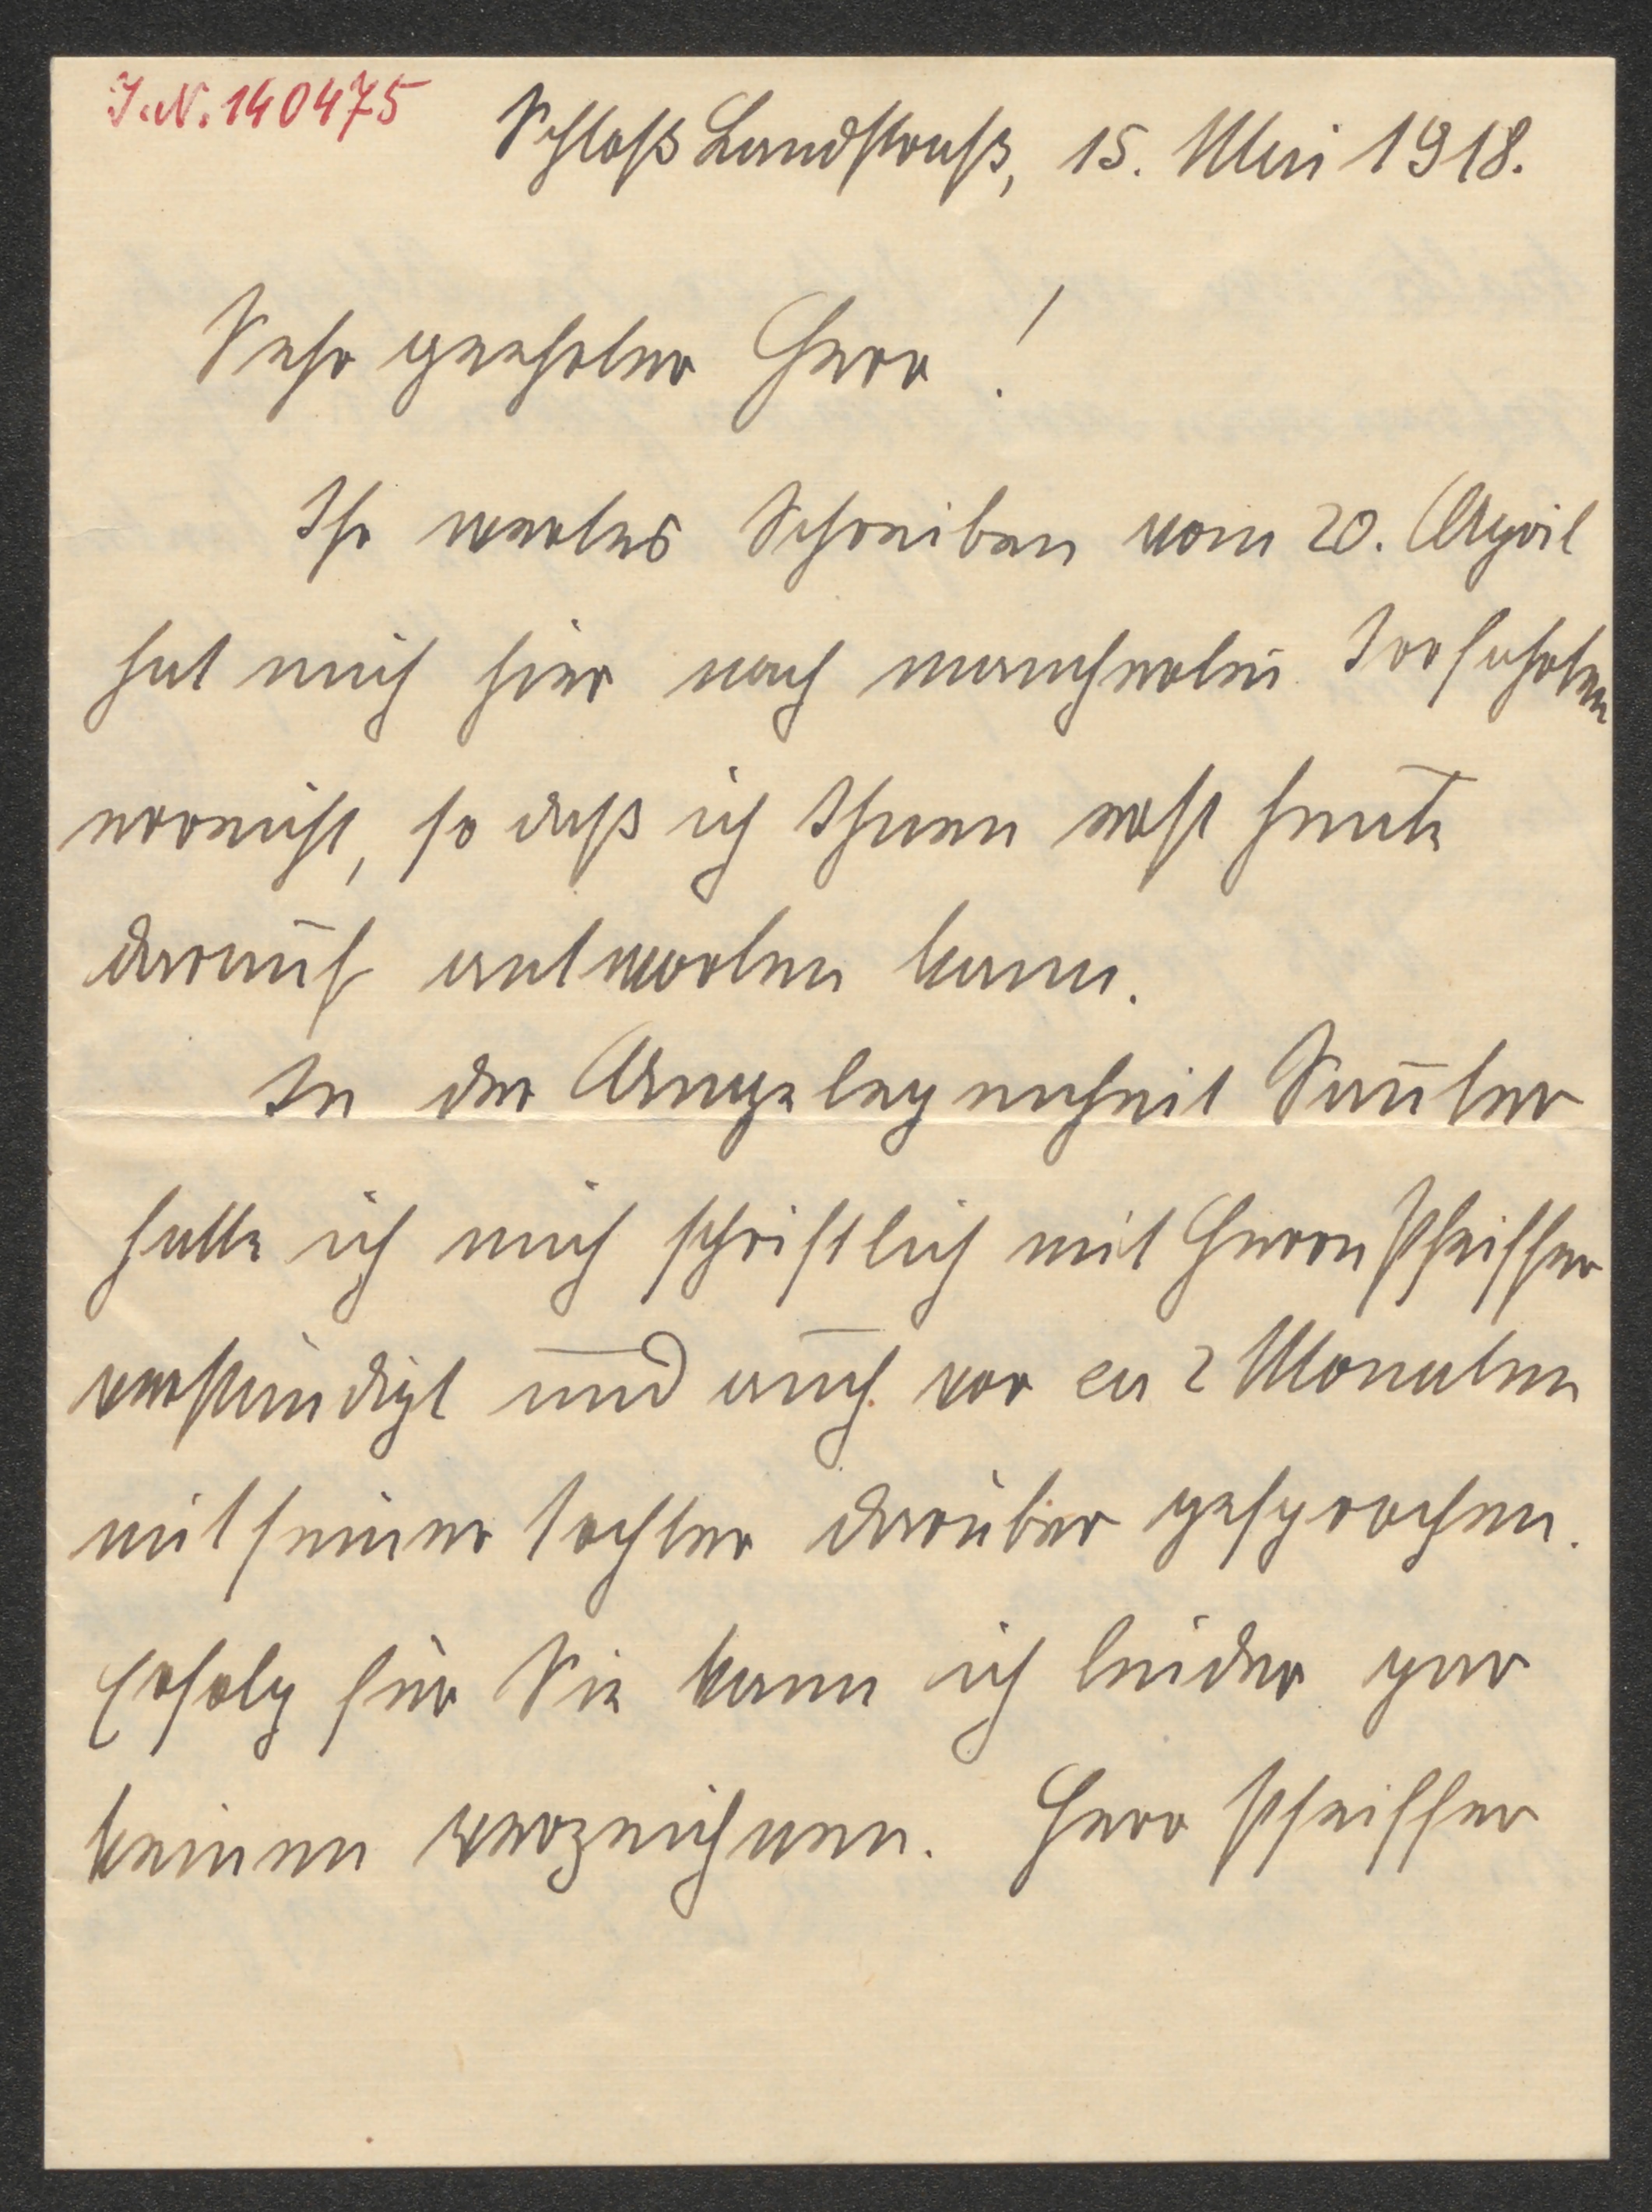 I.N. 140475
Schloß Landstraß, 15. Mai 1918.
Sehr geehrter Herr!
Ihr wertes Schreiben vom 20. April
hat mich hier nach mancherlei Irrfahrten
erreicht, so daß ich Ihnen erst heute
darauf antworten kann.
In der Angelegenheit Sauter
hatte ich mich schriftlich mit Herrn Pfeiffer
verständigt und auch vor ca 2 Monaten
mit seiner Tochter darüber gesprochen.
Erfolg für Sie kann ich leider gar
keinen verzeichnen. Herr Pfeiffer